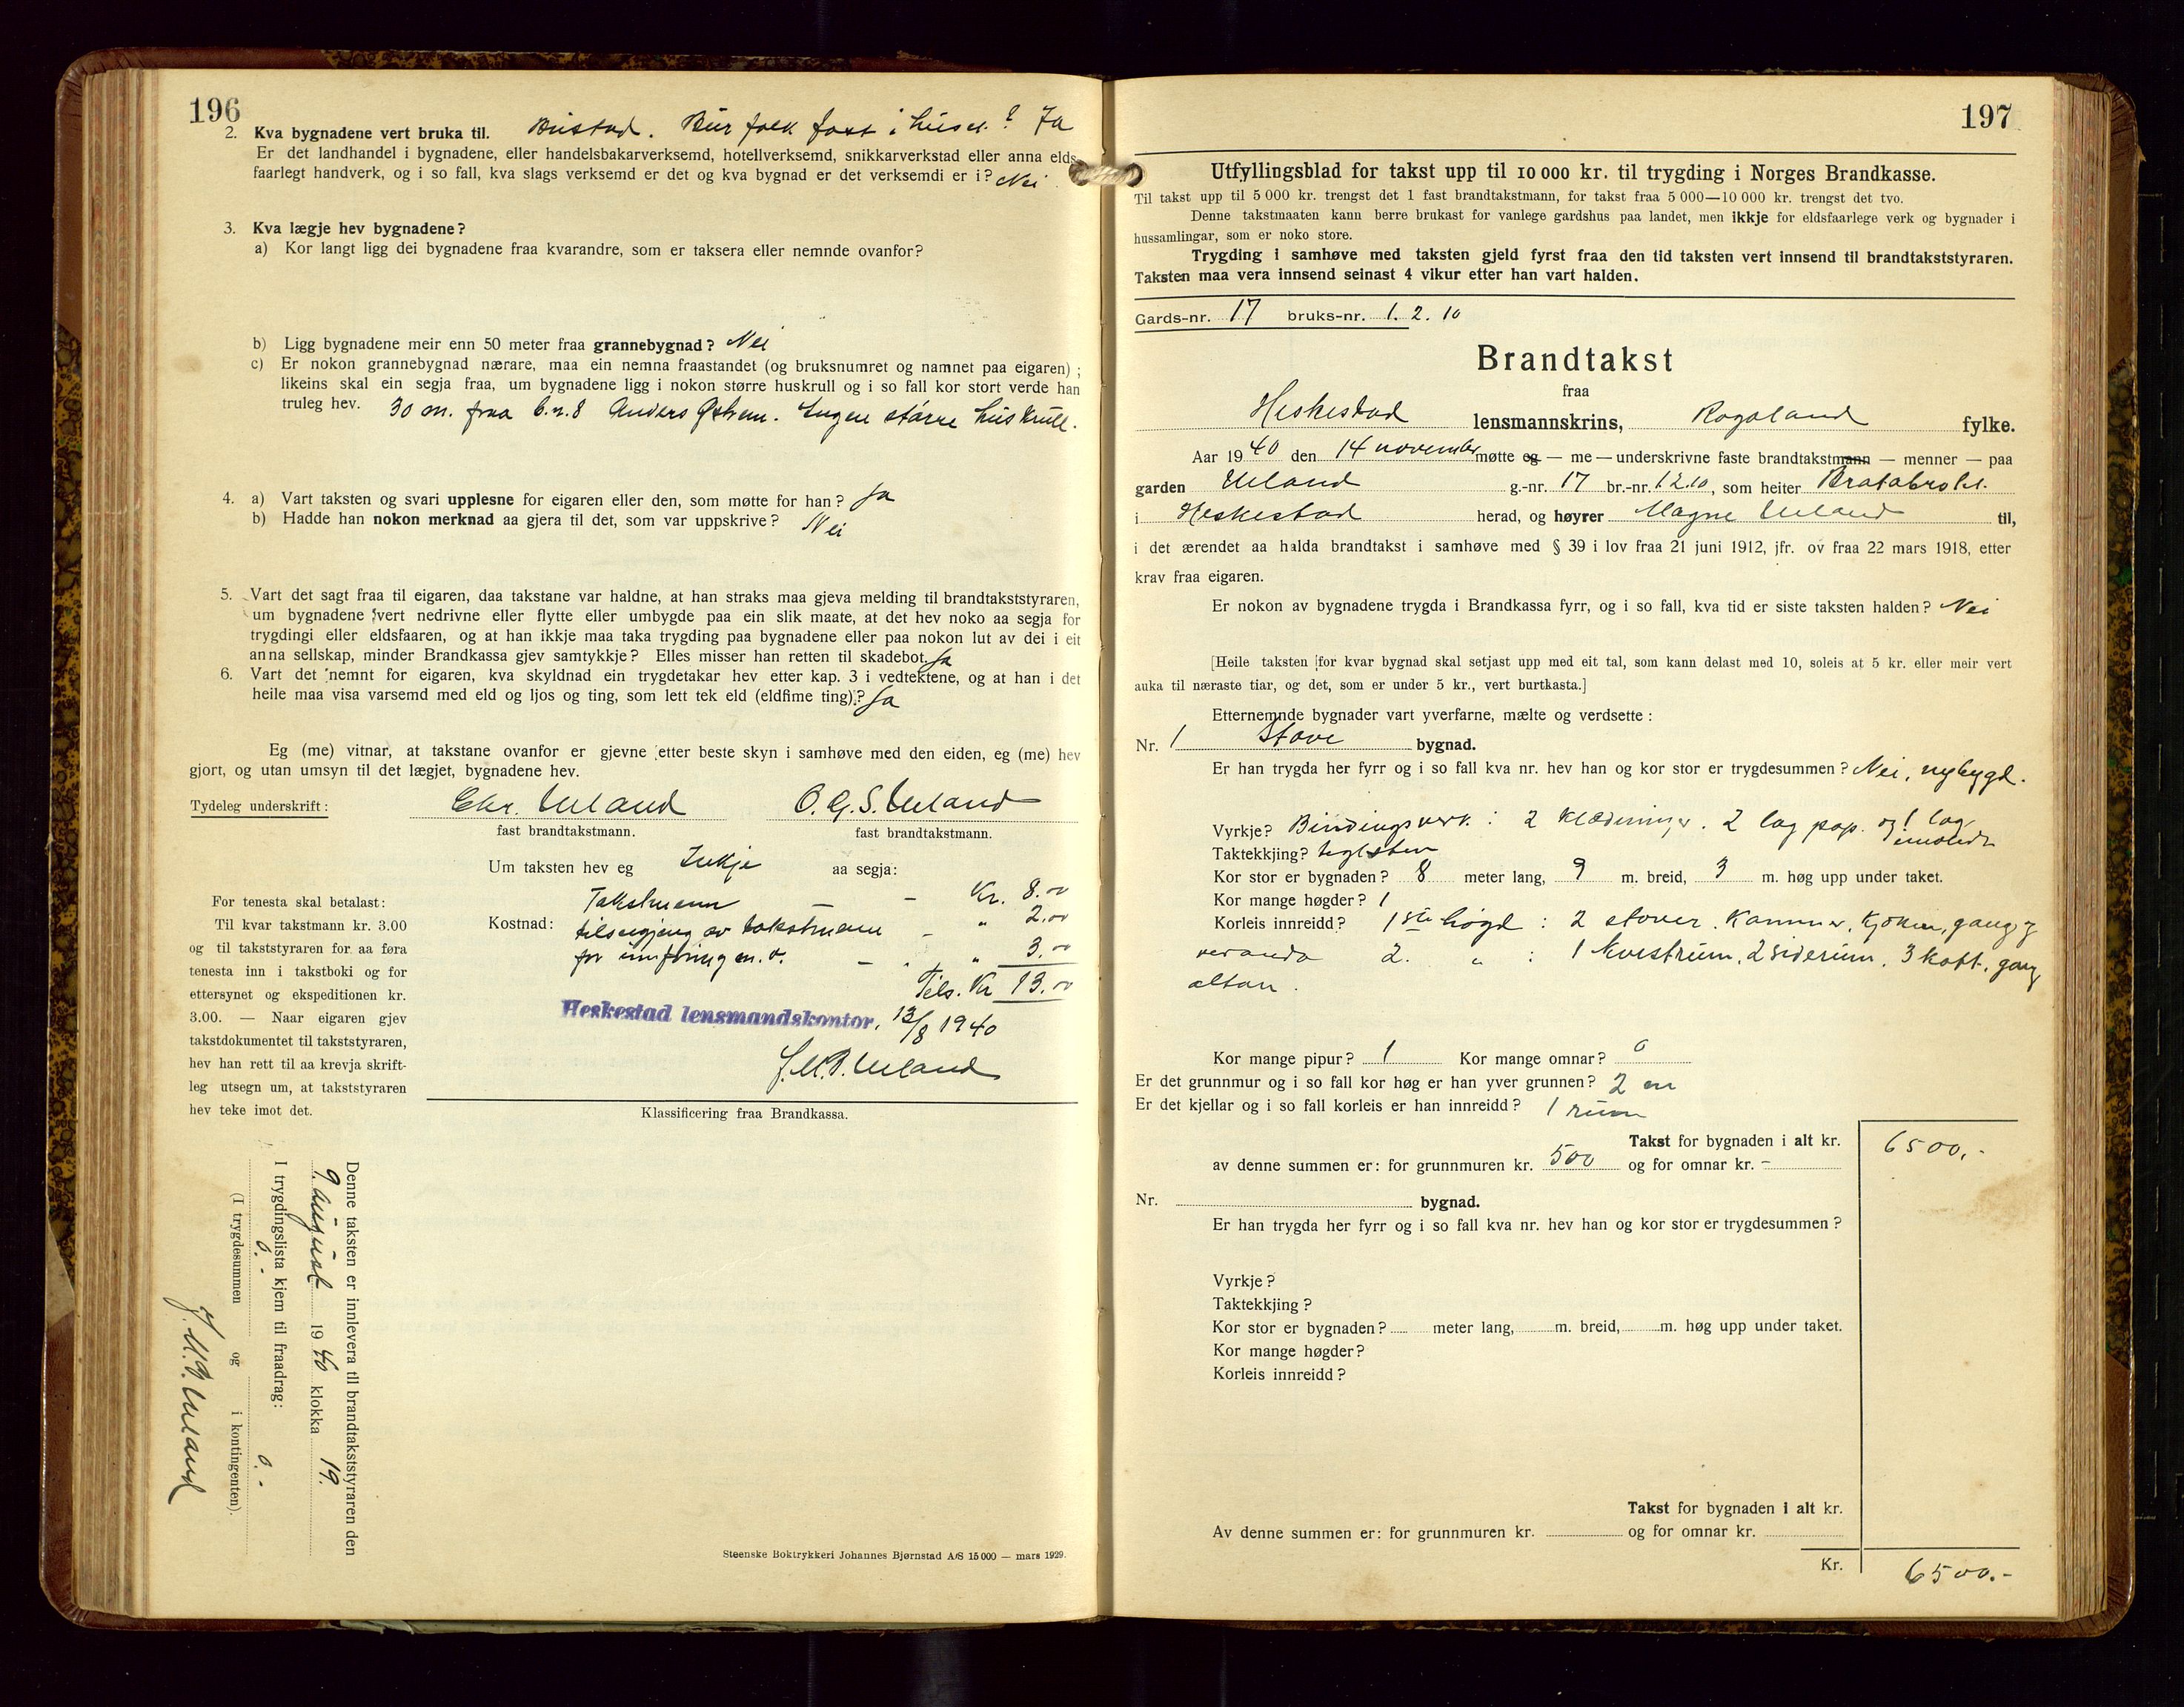 196
2. Kva bygnadene vert bruka til. Bustad. Bur folk fast i huset? Ja
Er det landhandel i bygnadene, eller handelsbakarverksemd, hotellverksemd, snikkarverkstad eller anna elds-
faarlegt handverk, og i so fall, kva slags verksemd er det og kva bygnad er det verksemdi er i? Nei
3. Kva lægje hev bygnadene?
a) Kor langt ligg dei bygnadene fraa kvarandre, som er taksera eller nemnde ovanfor?
b) Ligg bygnadene meir enn 50 meter fraa grannebygnad? Nei
c) Er nokon grannebygnad nærare, maa ein nemna fraastandet (og bruksnumret og namnet paa eigaren) ;
likeins skal ein segja fraa, um bygnadene ligg i nokon større huskrull og i so fall kor stort verde han
truleg hev. 30 m. fraa b.n. 8 Anders Østrem. Ingen større huskrull.
4. a) Vart taksten og svari upplesne for eigaren eller den, som møtte for han? Ja
b) Hadde han nokon merknad aa gjera til det, som var uppskrive? Nei
5. Vart det sagt fraa til eigaren, daa takstane var haldne, at han straks maa gjeva melding til brandtakststyraren,
um bygnadene vert nedrivne eller flytte eller umbygde paa ein slik maate, at det hev noko aa segja for
trygdingi eller eldsfaaren, og at han ikkje maa taka trygding paa bygnadene eller paa nokon lut av dei i eit
anna sellskap, minder Brandkassa gjev samtykkje? Elles misser han retten til skadebot. Ja
6. Vart det nemnt for eigaren, kva skyldnad ein trygdetakar hev etter kap. 3 i vedtektene, og at han i det
heile maa visa varsemd med eld og ljos og ting, som lett tek eld (eldfime ting)? Ja
Eg (me) vitnar, at takstane ovanfor er gjevne etter beste skyn i samhøve med den eiden, eg (me) hev
gjort, og utan umsyn til det lægjet, bygnadene hev.
Tydeleg underskrift: Chr. Ueland O. G. S. Ueland
fast brandtakstmann. fast brandtakstmann.
Um taksten hev eg Inkje aa segja:
Kostnad: Takstmenn — - Kr. 8.00
tilsegjing av takstmenn - " 2.00
for innføring m.v. - " " 3.00
Tils. Kr 13.00
Heskestad lensmandskontor, 13/8 1940
J. M. B. Ueland
For tenesta skal betalast:
Til kvar takstmann kr. 3.00
og til takststyraren for aa føra
tenesta inn i takstboki og for
ettersynet og ekspeditionen kr.
3.00. — Naar eigaren gjev
takstdokumentet til takststyraren,
hev han rett til aa krevja skrift-
leg utsegn um, at takststyraren
hev teke imot det.
Klassificering fraa Brandkassa.
Denne taksten er innlevera til brandtakststyraren den
9. august 1940 klokka 19.
I trygdingslista kjem til fraadrag:
0.- 0.-
(I trygdesummen og i kontingenten).
J. M. B. Ueland
Steenske Boktrykkeri Johannes Bjørnstad A/S 15 000 — mars 1929.
197
Utfyllingsblad for takst upp til 10 000 kr. til trygding i Norges Brandkasse.
Til takst upp til 5 000 kr. trengst det 1 fast brandtakstmann, for takst fraa 5 000—10 000 kr. trengst det tvo.
Denne takstmaaten kann berre brukast for vanlege gardshus paa landet, men ikkje for eldsfaarlege verk og bygnader i
hussamlingar, som er noko store.
Trygding i samhøve med taksten gjeld fyrst fraa den tid taksten vert innsend til brandtakststyraren.
Taksten maa vera innsend seinast 4 vikur etter han vart halden.
Gards-nr. 17 bruks-nr. 1. 2. 10
Brandtakst
fraa
Heskestad lensmannskrins, Rogaland fylke.
Aar 1940 den 14 november møtte eg — me — underskrivne faste brandtakstmann — menner — paa
garden Ueland g.-nr. 17 br.-nr. 1.2.10, som heiter
i Heskestad herad, og høyrer Magne Ueland til,
i det ærendet aa halda brandtakst i samhøve med § 39 i lov fraa 21 juni 1912, jfr. ov fraa 22 mars 1918, etter
krav fraa eigaren.
Er nokon av bygnadene trygda i Brandkassa fyrr, og i so fall, kva tid er siste taksten halden? Nei
[Heile taksten for kvar bygnad skal setjast upp med eit tal, som kann delast med 10, soleis at 5 kr. eller meir vert
auka til næraste tiar, og det, som er under 5 kr., vert burtkasta.]
Etternemnde bygnader vart yverfarne, mælte og verdsette :
Nr. 1 Stove bygnad.
Er han trygda her fyrr og i so fall kva nr. hev han og kor stor er trygdesummen? Nei, nybygd.
Vyrkje? Bindingsverk: 2 klædninger. 2 lag pap. og 1 lag
Taktekkjing? teglsten
Kor stor er bygnaden? 8 meter lang, 9 m. breid, 3 m. høg upp under taket.
Kor mange høgder? 1
Korleis innreidd? 1ste høgd : 2 stover. Kammer, Kjøken, gang og
veranda 2. " : 1 kvestrum, 2 siderum. 3 kott, gang
altan.
Kor mange pipur? 1 Kor mange omnar? 0
Er det grunnmur og i so fall kor høg er han yver grunnen? 2 m
Er det kjellar og i so fall korleis er han innreidd? 1 rum
Takst for bygnaden i alt kr. 6500,-
av denne summen er: for grunnmuren kr. 500 og for omnar kr. -
Nr. bygnad.
Er han trygda her fyrr og i so fall kva nr. hev han og kor stor er trygdesummen ?
Vyrkje ?
Taktekkjing ?
Kor stor er bygnaden? meter lang, m. breid, m. høg upp under taket.
Kor mange høgder?
Korleis innreidd ?
Takst for bygnaden i alt kr.
Av denne summen er: for grunnmuren kr. og for omnar kr.
Kr. 6500.-